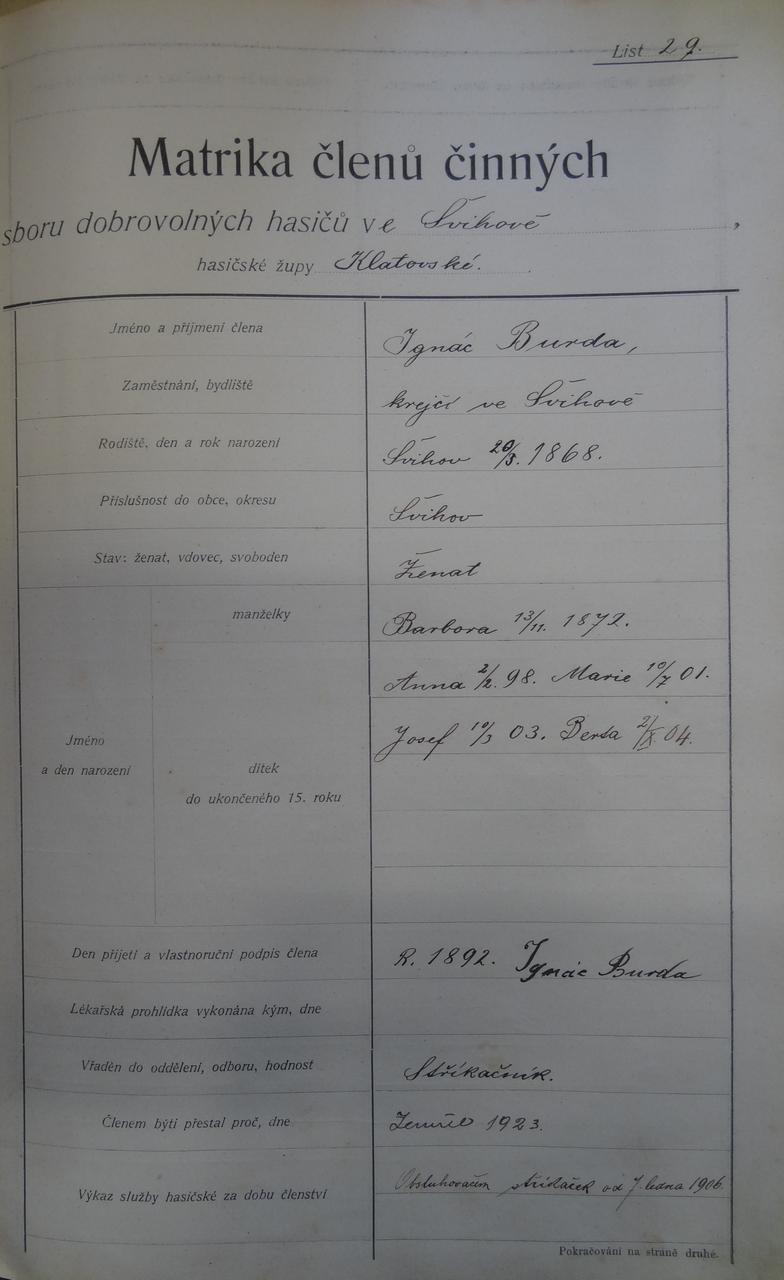 List 29.
Matrika členů činných
sboru dobrovolných hasičů ve Švihově,
hasičské župy Klatovské.
Jméno a příjmení člena Ignác Burda,
Zaměstnání, bydliště krejčí ve Švihově
Rodiště, den a rok narození Švihov 20/5. 1868.
Příslušnost do obce, okresu Švihov
Stav: ženat, vdovec, svoboden Ženat
manželky Barbora 13/11. 1872.
Anna 2/2. 98. Marie 10/7 01.
Josef 10/3 03. Berta 2/X. 04.
Jméno
a den narození
dítek
do ukončeného 15. roku
Den přijetí a vlastnoruční podpis člena R. 1892. Ignác Burda
Lékařská prohlídka vykonána kým, dne
Vřaděn do oddělení, odboru, hodnost Stříkačník.
Členem býti přestal proč, dne Zemřel 1923.
Výkaz služby hasičské za dobu členství od 7. ledna 1906
Pokračování na straně druhé.